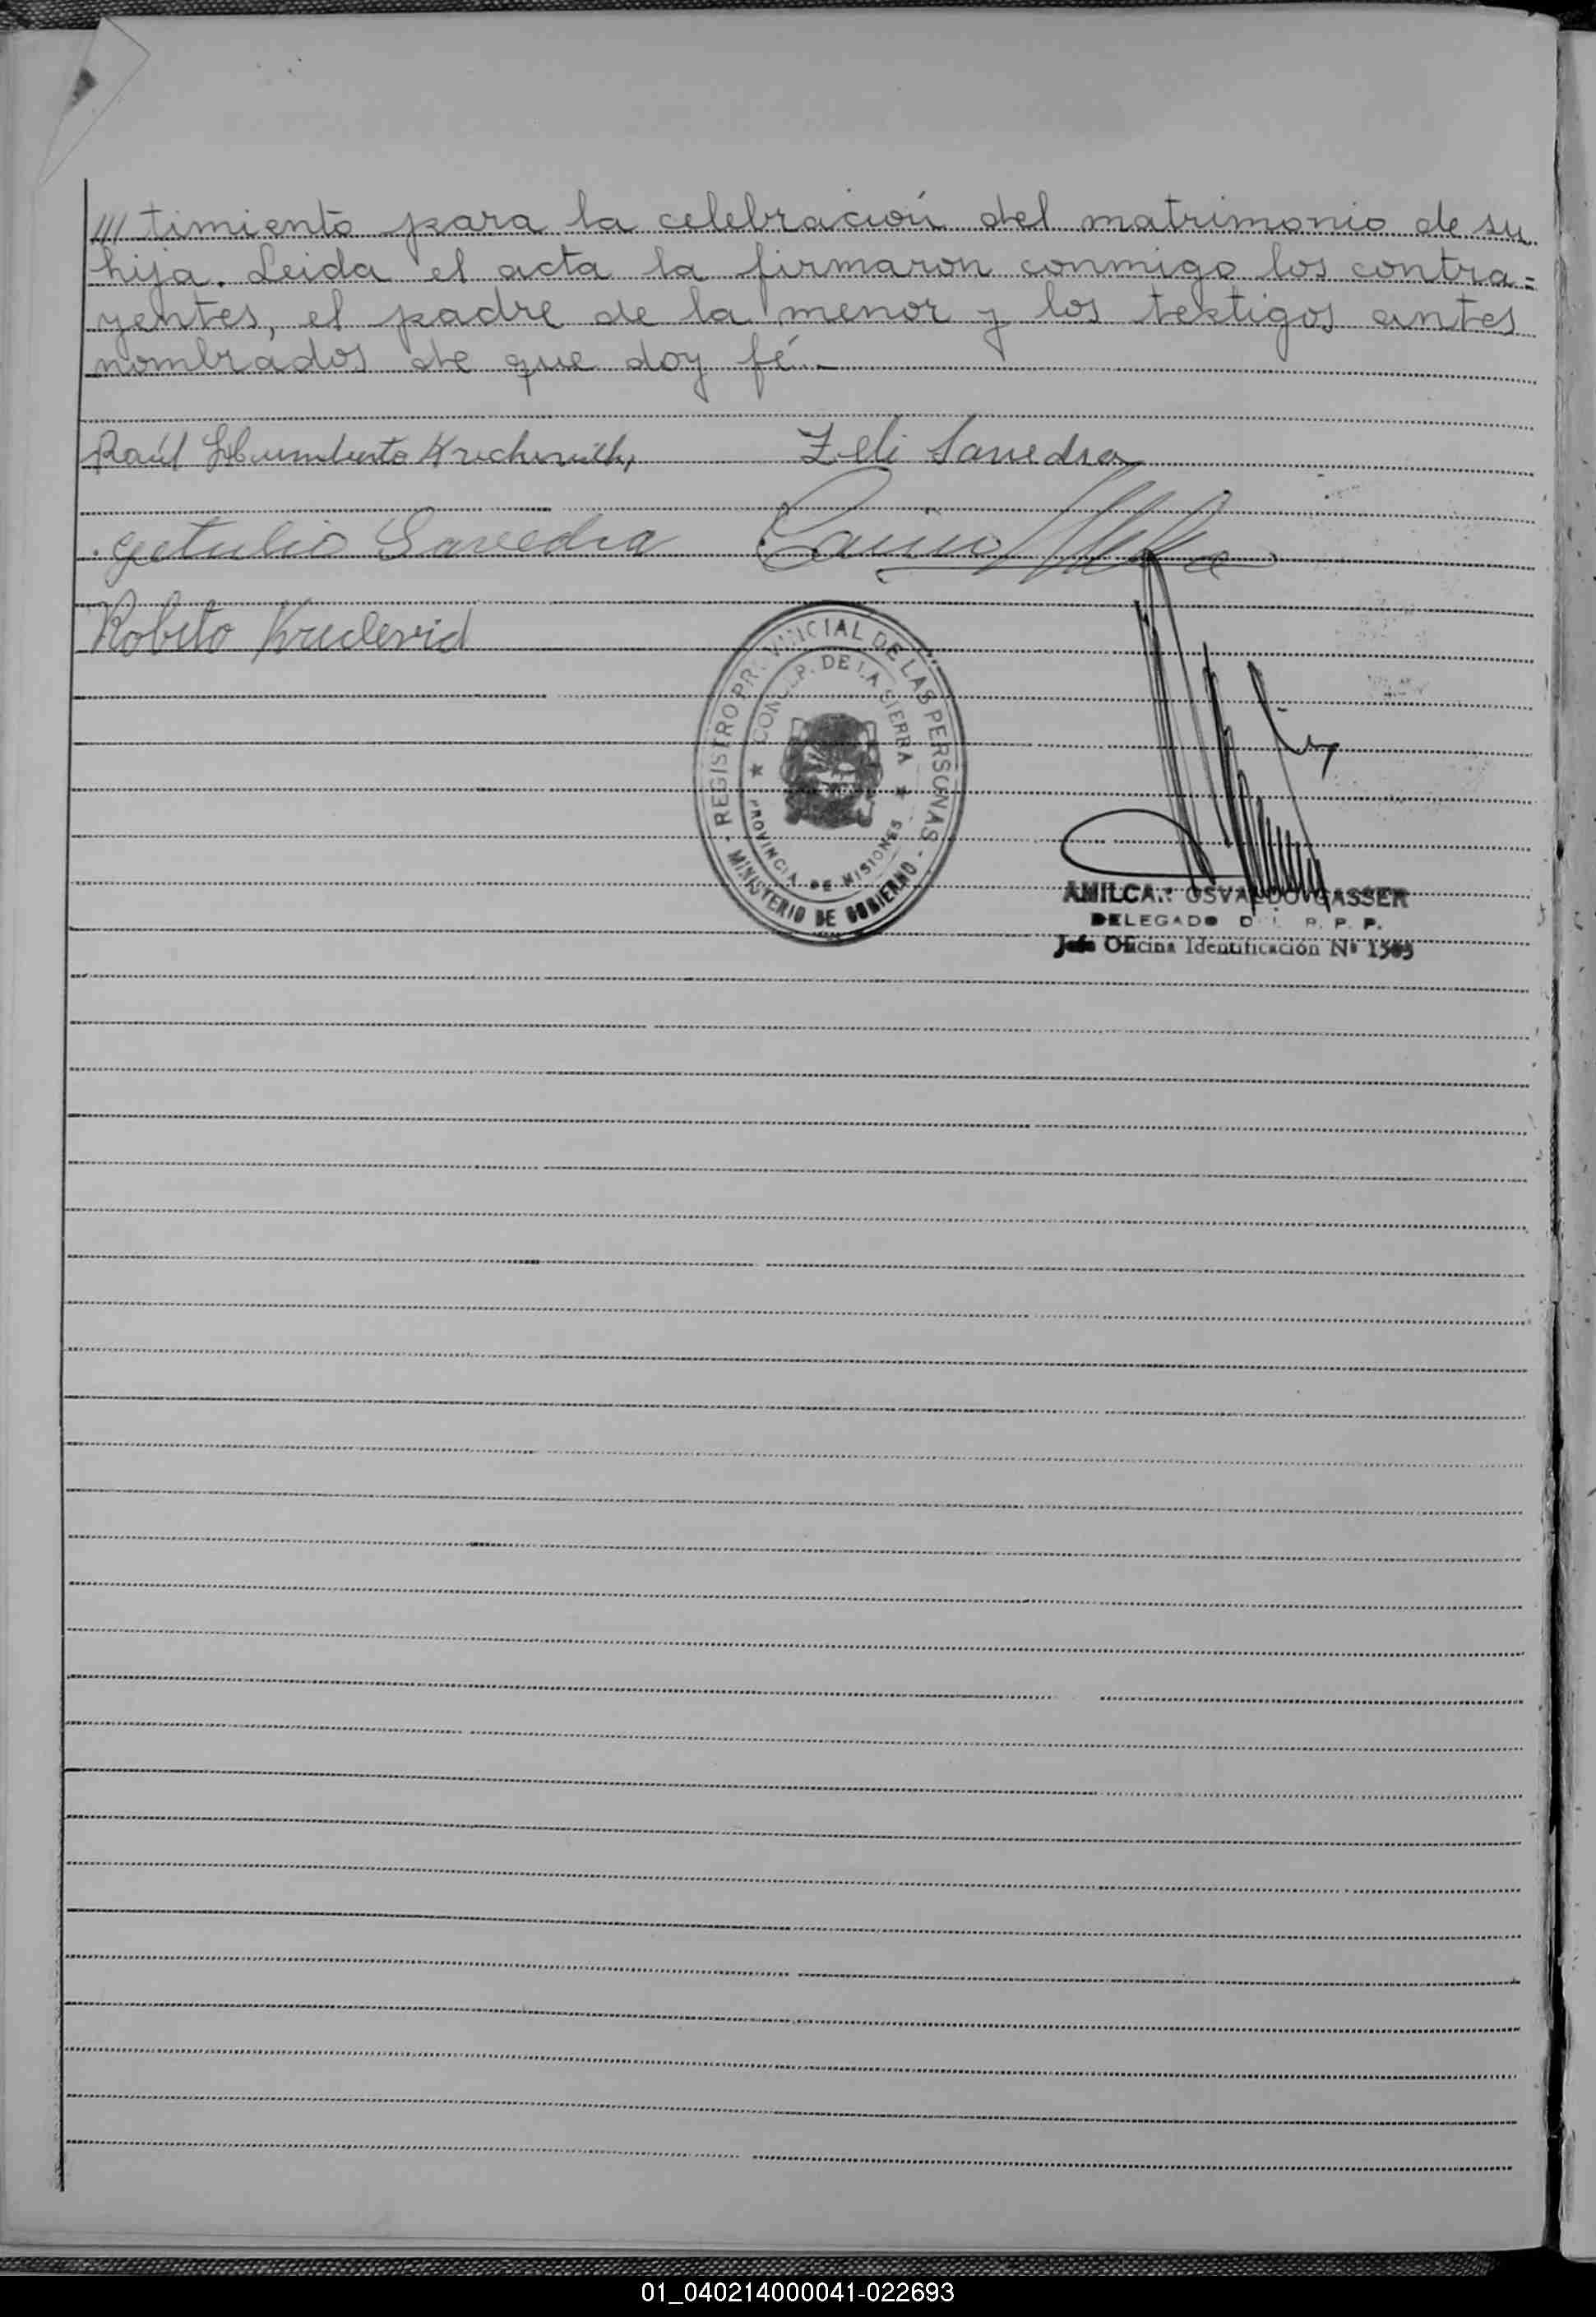 /// timiento para la celebración del matrimonio de su
hija. Leida el acta la firmaron conmigo los contra=
yentes, el padre de la menor y los testigos antes
nombrados de que doy fé.-
Raúl Humberto Zeli Savedra
Getulio Savedra
Roberto
REGISTRO PROVINCIAL DE LAS PERSONAS
CONCEP. DE LA SIERRA
PROVINCIA DE MISIONES
MINISTERIO DE GOBIERNO
AMILCAR OSVALDO GASSER
DELEGADO R. P. P.
Jefe Oficina Identificación Nº
01_040214000041-022693